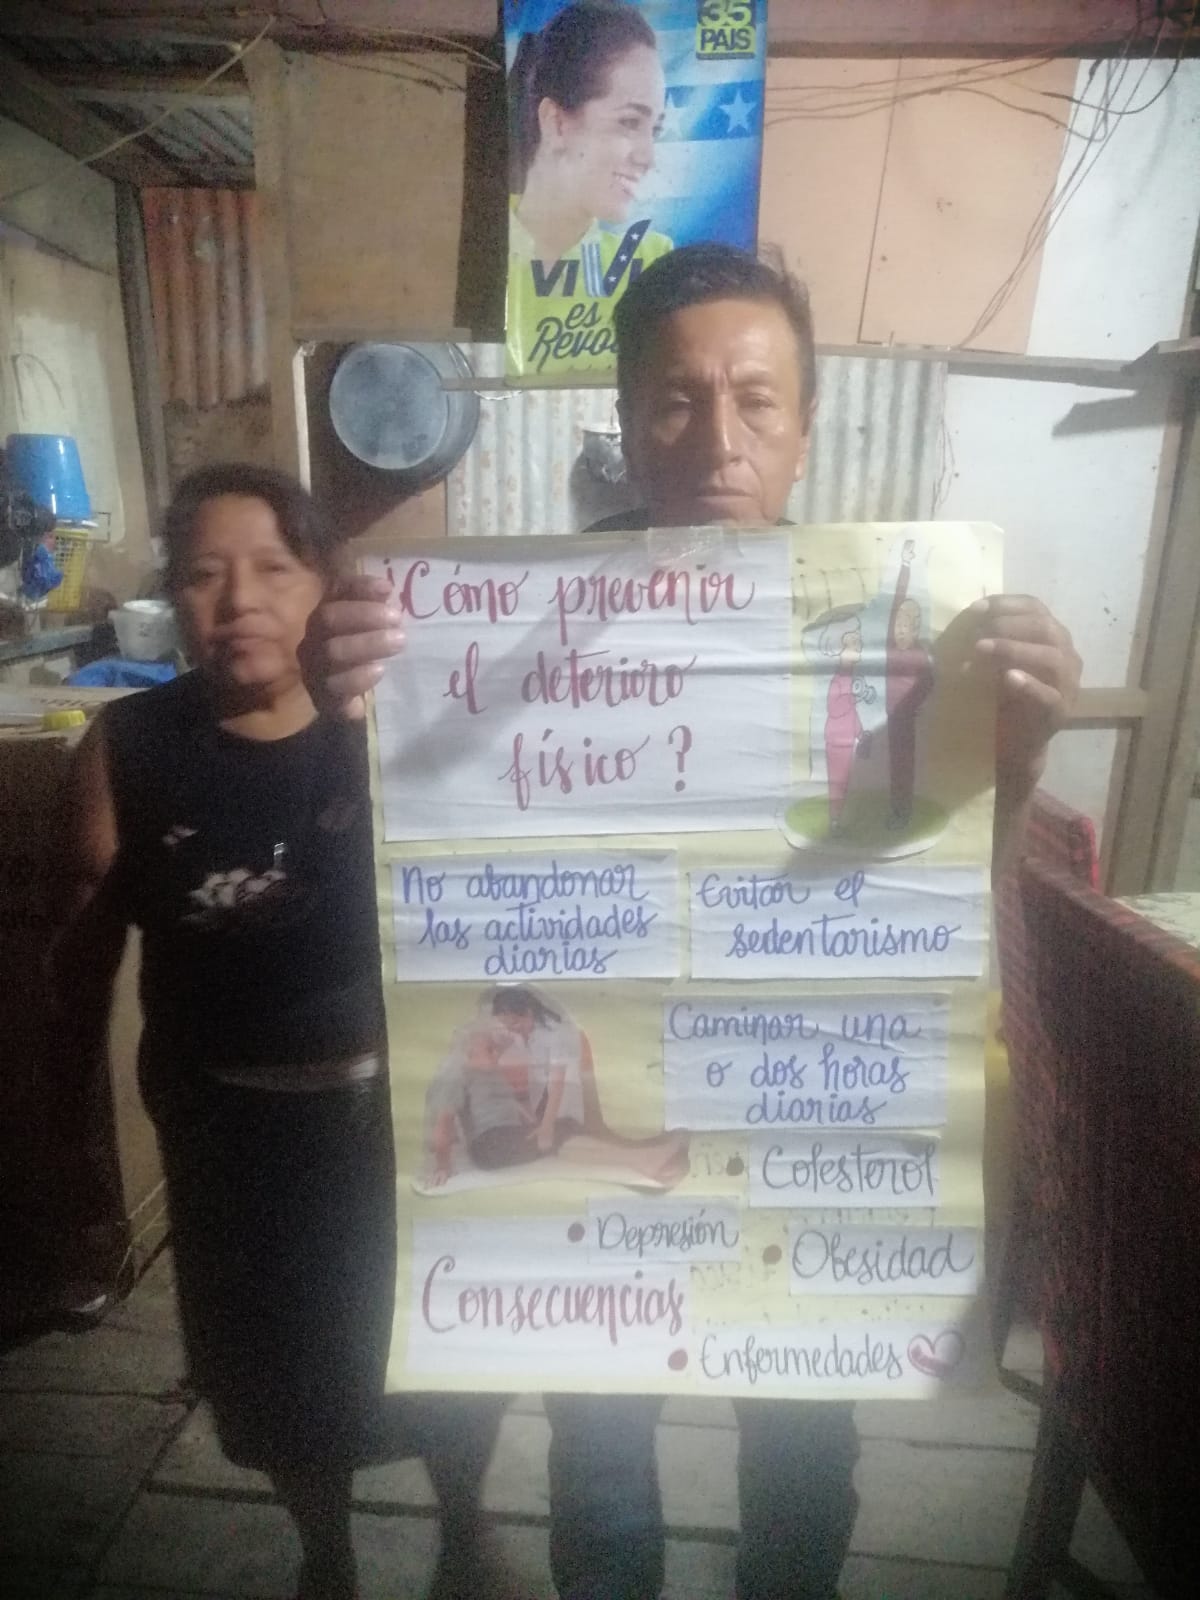 35
PAIS
es
¿Cómo prevenir
el deterioro
físico?
No abandonar
las actividades
diarias
Evitar el
sedentarismo
Caminar una
o dos horas
diarias
• Colesterol
• Depresión
• Obesidad
Consecuencias
• Enfermedades